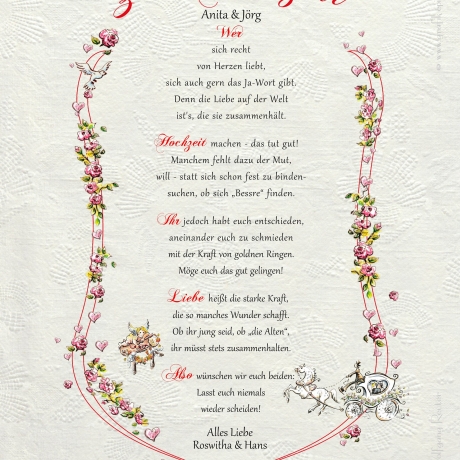 Anita & Jörg
Wer
sich recht
von Herzen liebt,
sich auch gern das Ja-Wort gibt.
Denn die Liebe auf der Welt
ist's, die sie zusammenhält.
Hochzeit machen - das tut gut!
Manchem fehlt dazu der Mut,
will - statt sich schon fest zu binden-
suchen, ob sich „Bessre“ finden.
Ihr jedoch habt euch entschieden,
aneinander euch zu schmieden
mit der Kraft von goldnen Ringen.
Möge euch das gut gelingen!
Liebe heißt die starke Kraft,
die so manches Wunder schafft.
Ob ihr jung seid, ob „die Alten“,
ihr müsst stets zusammenhalten.
Also wünschen wir euch beiden:
Lasst euch niemals
wieder scheiden!
Alles Liebe
Roswitha & Hans